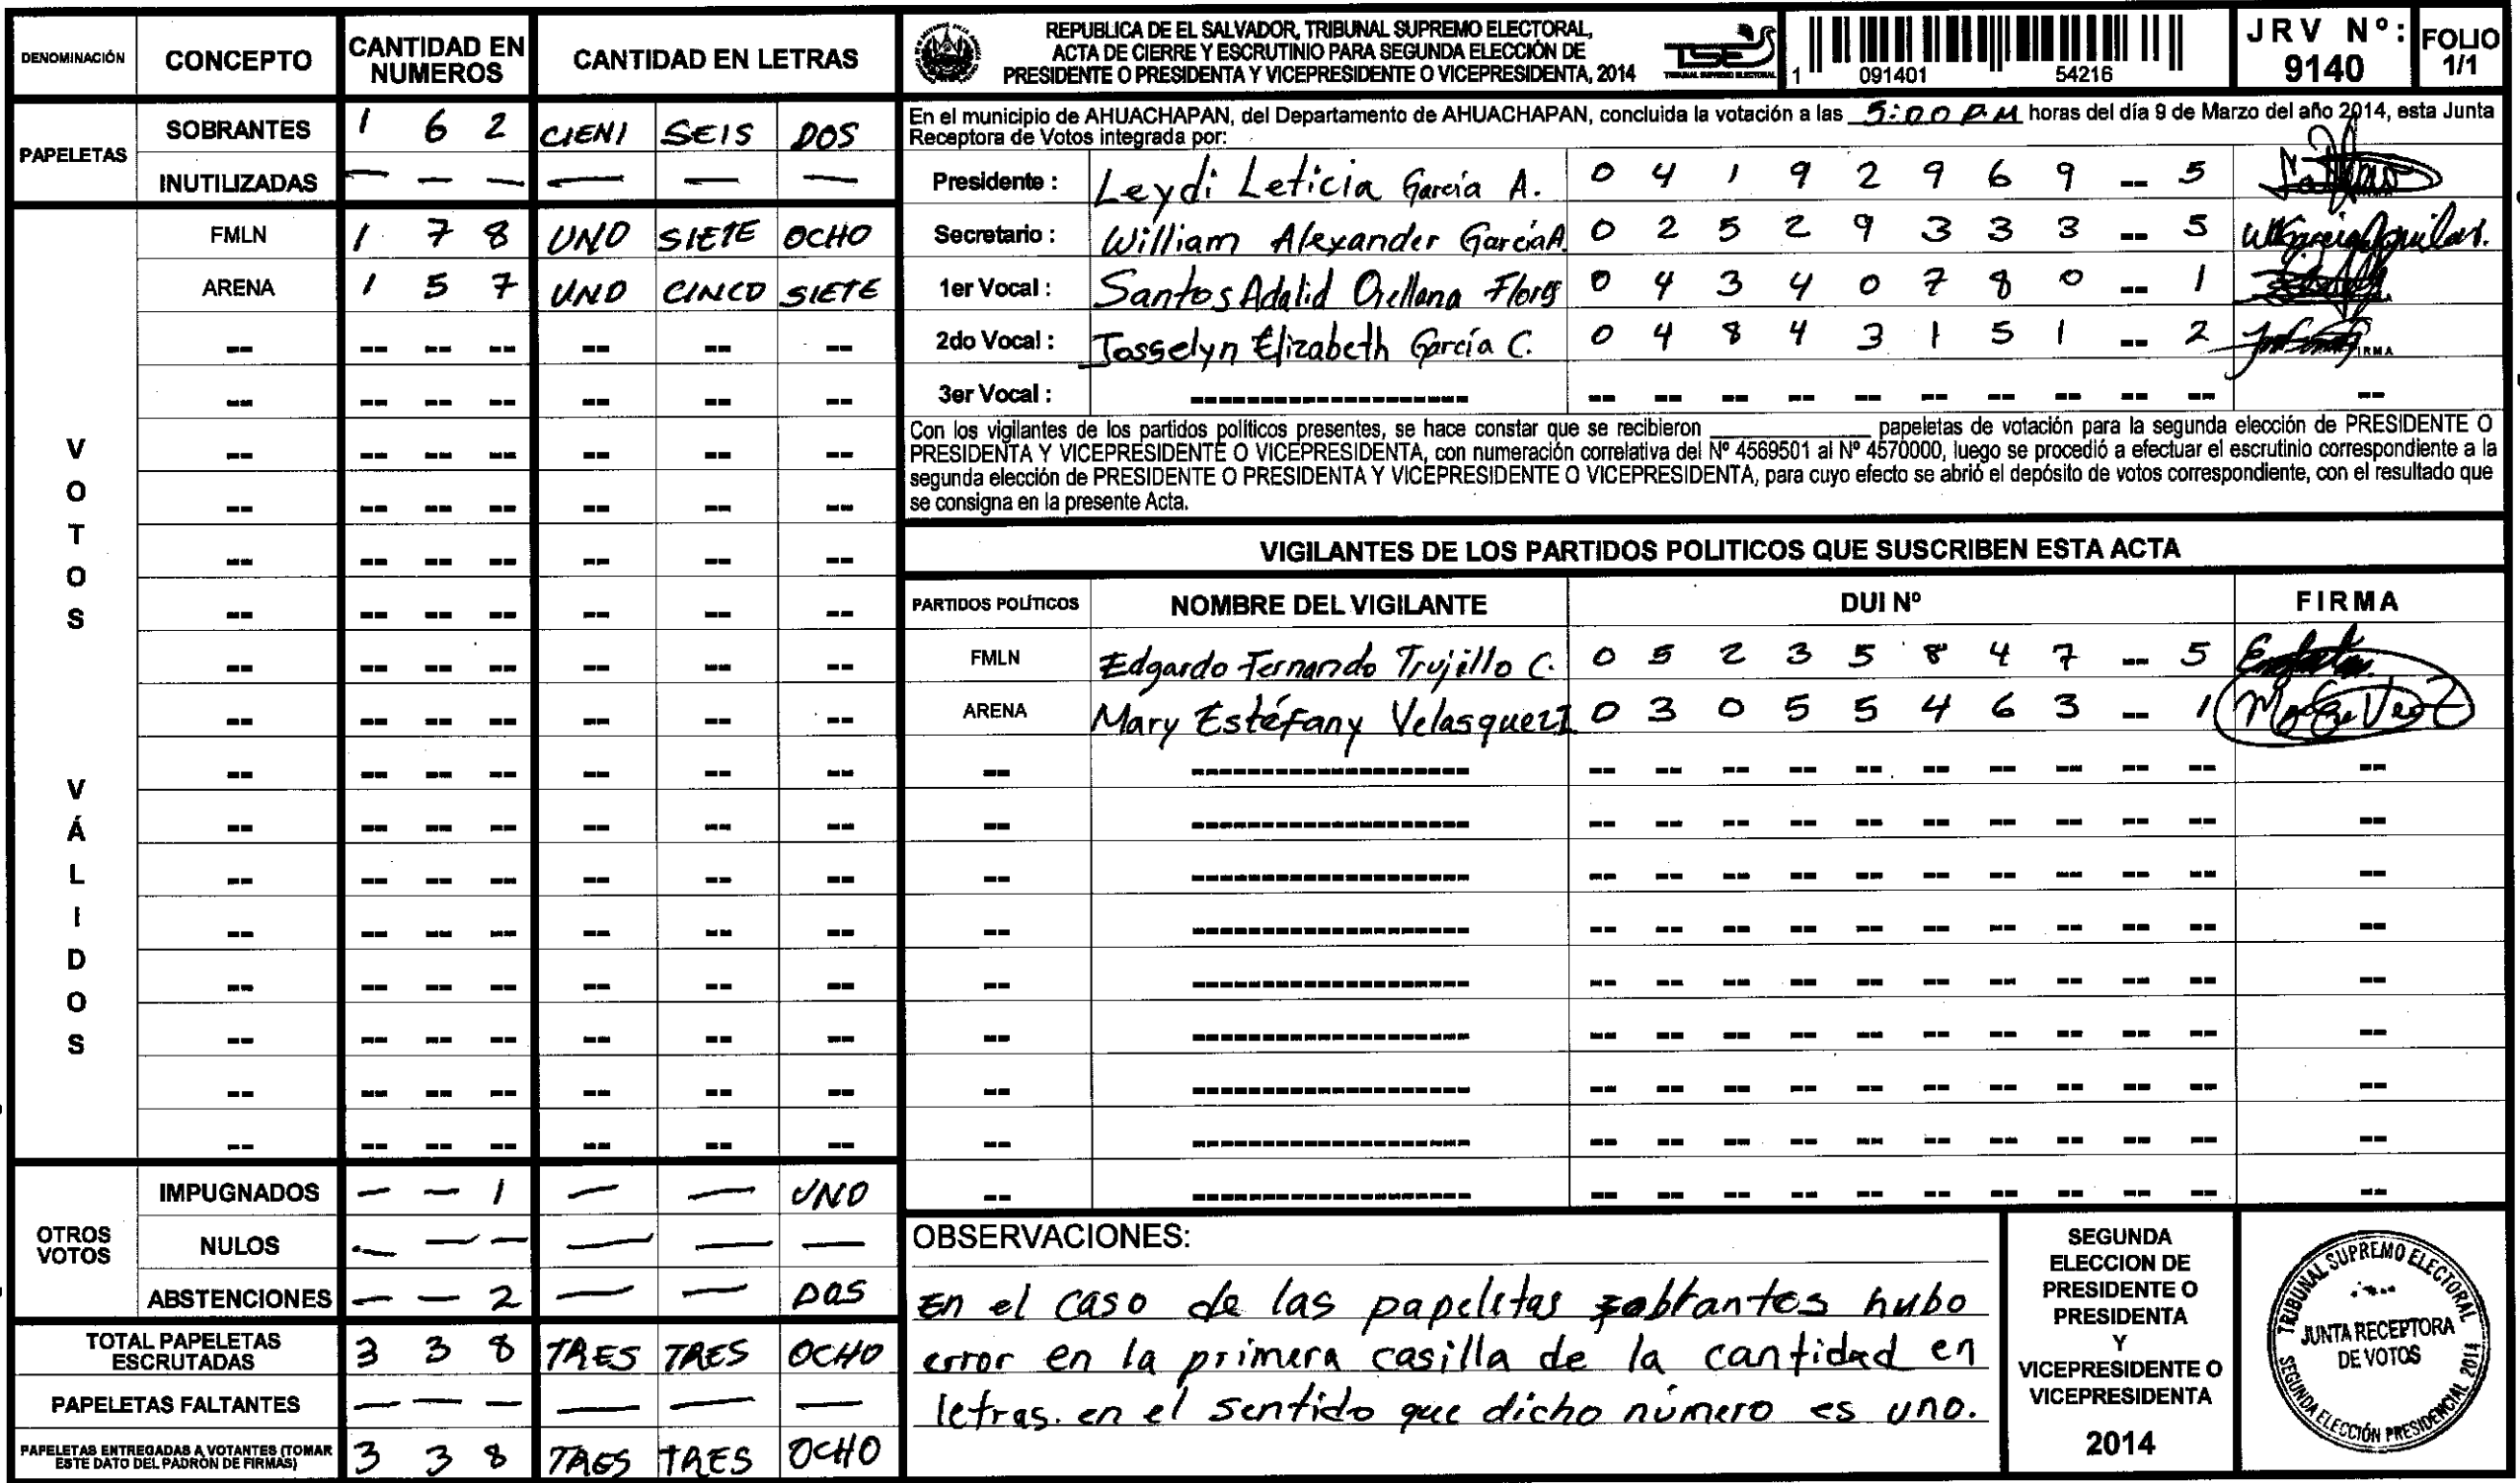 DENOMINACIÓN CONCEPTO CANTIDAD EN NUMEROS CANTIDAD EN LETRAS
PAPELETAS
SOBRANTES 1 6 2 CIENI SEIS DOS
INUTILIZADAS — — — — — —
VOTOS VÁLIDOS
FMLN 1 7 8 UNO SIETE OCHO
ARENA 1 5 7 UNO CINCO SIETE
OTROS VOTOS
IMPUGNADOS — — 1 — — UNO
NULOS — — — — — —
ABSTENCIONES — — 2 — — DOS
TOTAL PAPELETAS ESCRUTADAS 3 3 8 TRES TRES OCHO
PAPELETAS FALTANTES — — — — — —
PAPELETAS ENTREGADAS A VOTANTES (TOMAR ESTE DATO DEL PADRÓN DE FIRMAS) 3 3 8 TRES TRES OCHO
REPUBLICA DE EL SALVADOR, TRIBUNAL SUPREMO ELECTORAL,
ACTA DE CIERRE Y ESCRUTINIO PARA SEGUNDA ELECCIÓN DE
PRESIDENTE O PRESIDENTA Y VICEPRESIDENTE O VICEPRESIDENTA, 2014
TSE
TRIBUNAL SUPREMO ELECTORAL
1 091401 54216
JRV Nº: 9140
FOLIO 1/1
En el municipio de AHUACHAPAN, del Departamento de AHUACHAPAN, concluida la votación a las 5:00 PM horas del día 9 de Marzo del año 2014, esta Junta
Receptora de Votos integrada por:
Presidente : Leydi Leticia García A. 0 4 1 9 2 9 6 9 -- 5
Secretario : William Alexander García A. 0 2 5 2 9 3 3 3 -- 5
1er Vocal : Santos Adalid Orellana Flores 0 4 3 4 0 7 8 0 -- 1
2do Vocal : Josselyn Elizabeth García C. 0 4 8 4 3 1 5 1 -- 2 FIRMA
3er Vocal :
Con los vigilantes de los partidos políticos presentes, se hace constar que se recibieron ________ papeletas de votación para la segunda elección de PRESIDENTE O
PRESIDENTA Y VICEPRESIDENTE O VICEPRESIDENTA, con numeración correlativa del Nº 4569501 al Nº 4570000, luego se procedió a efectuar el escrutinio correspondiente a la
segunda elección de PRESIDENTE O PRESIDENTA Y VICEPRESIDENTE O VICEPRESIDENTA, para cuyo efecto se abrió el depósito de votos correspondiente, con el resultado que
se consigna en la presente Acta.
VIGILANTES DE LOS PARTIDOS POLITICOS QUE SUSCRIBEN ESTA ACTA
PARTIDOS POLÍTICOS NOMBRE DEL VIGILANTE DUI Nº FIRMA
FMLN Edgardo Fernando Trujillo C. 0 5 2 3 5 8 4 7 -- 5
ARENA Mary Estéfany Velasquez 0 3 0 5 5 4 6 3 -- 1
OBSERVACIONES:
En el caso de las papeletas sobrantes hubo
error en la primera casilla de la cantidad en
letras. en el sentido que dicho número es uno.
SEGUNDA
ELECCION DE
PRESIDENTE O
PRESIDENTA
Y
VICEPRESIDENTE O
VICEPRESIDENTA
2014
TRIBUNAL SUPREMO ELECTORAL
JUNTA RECEPTORA
DE VOTOS
SEGUNDA ELECCIÓN PRESIDENCIAL 2014